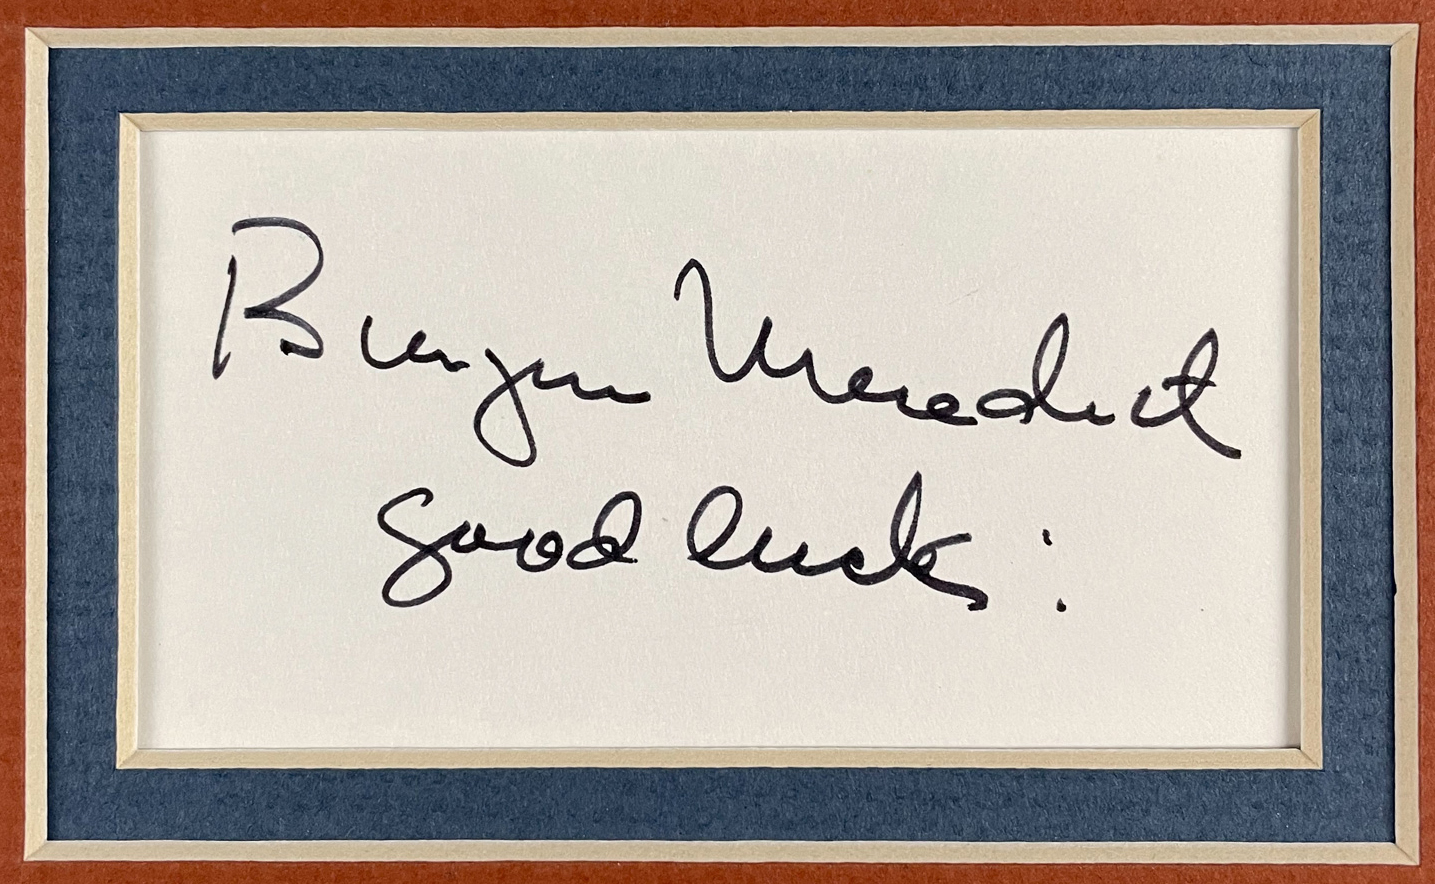 Burgess Meredith
good luck!